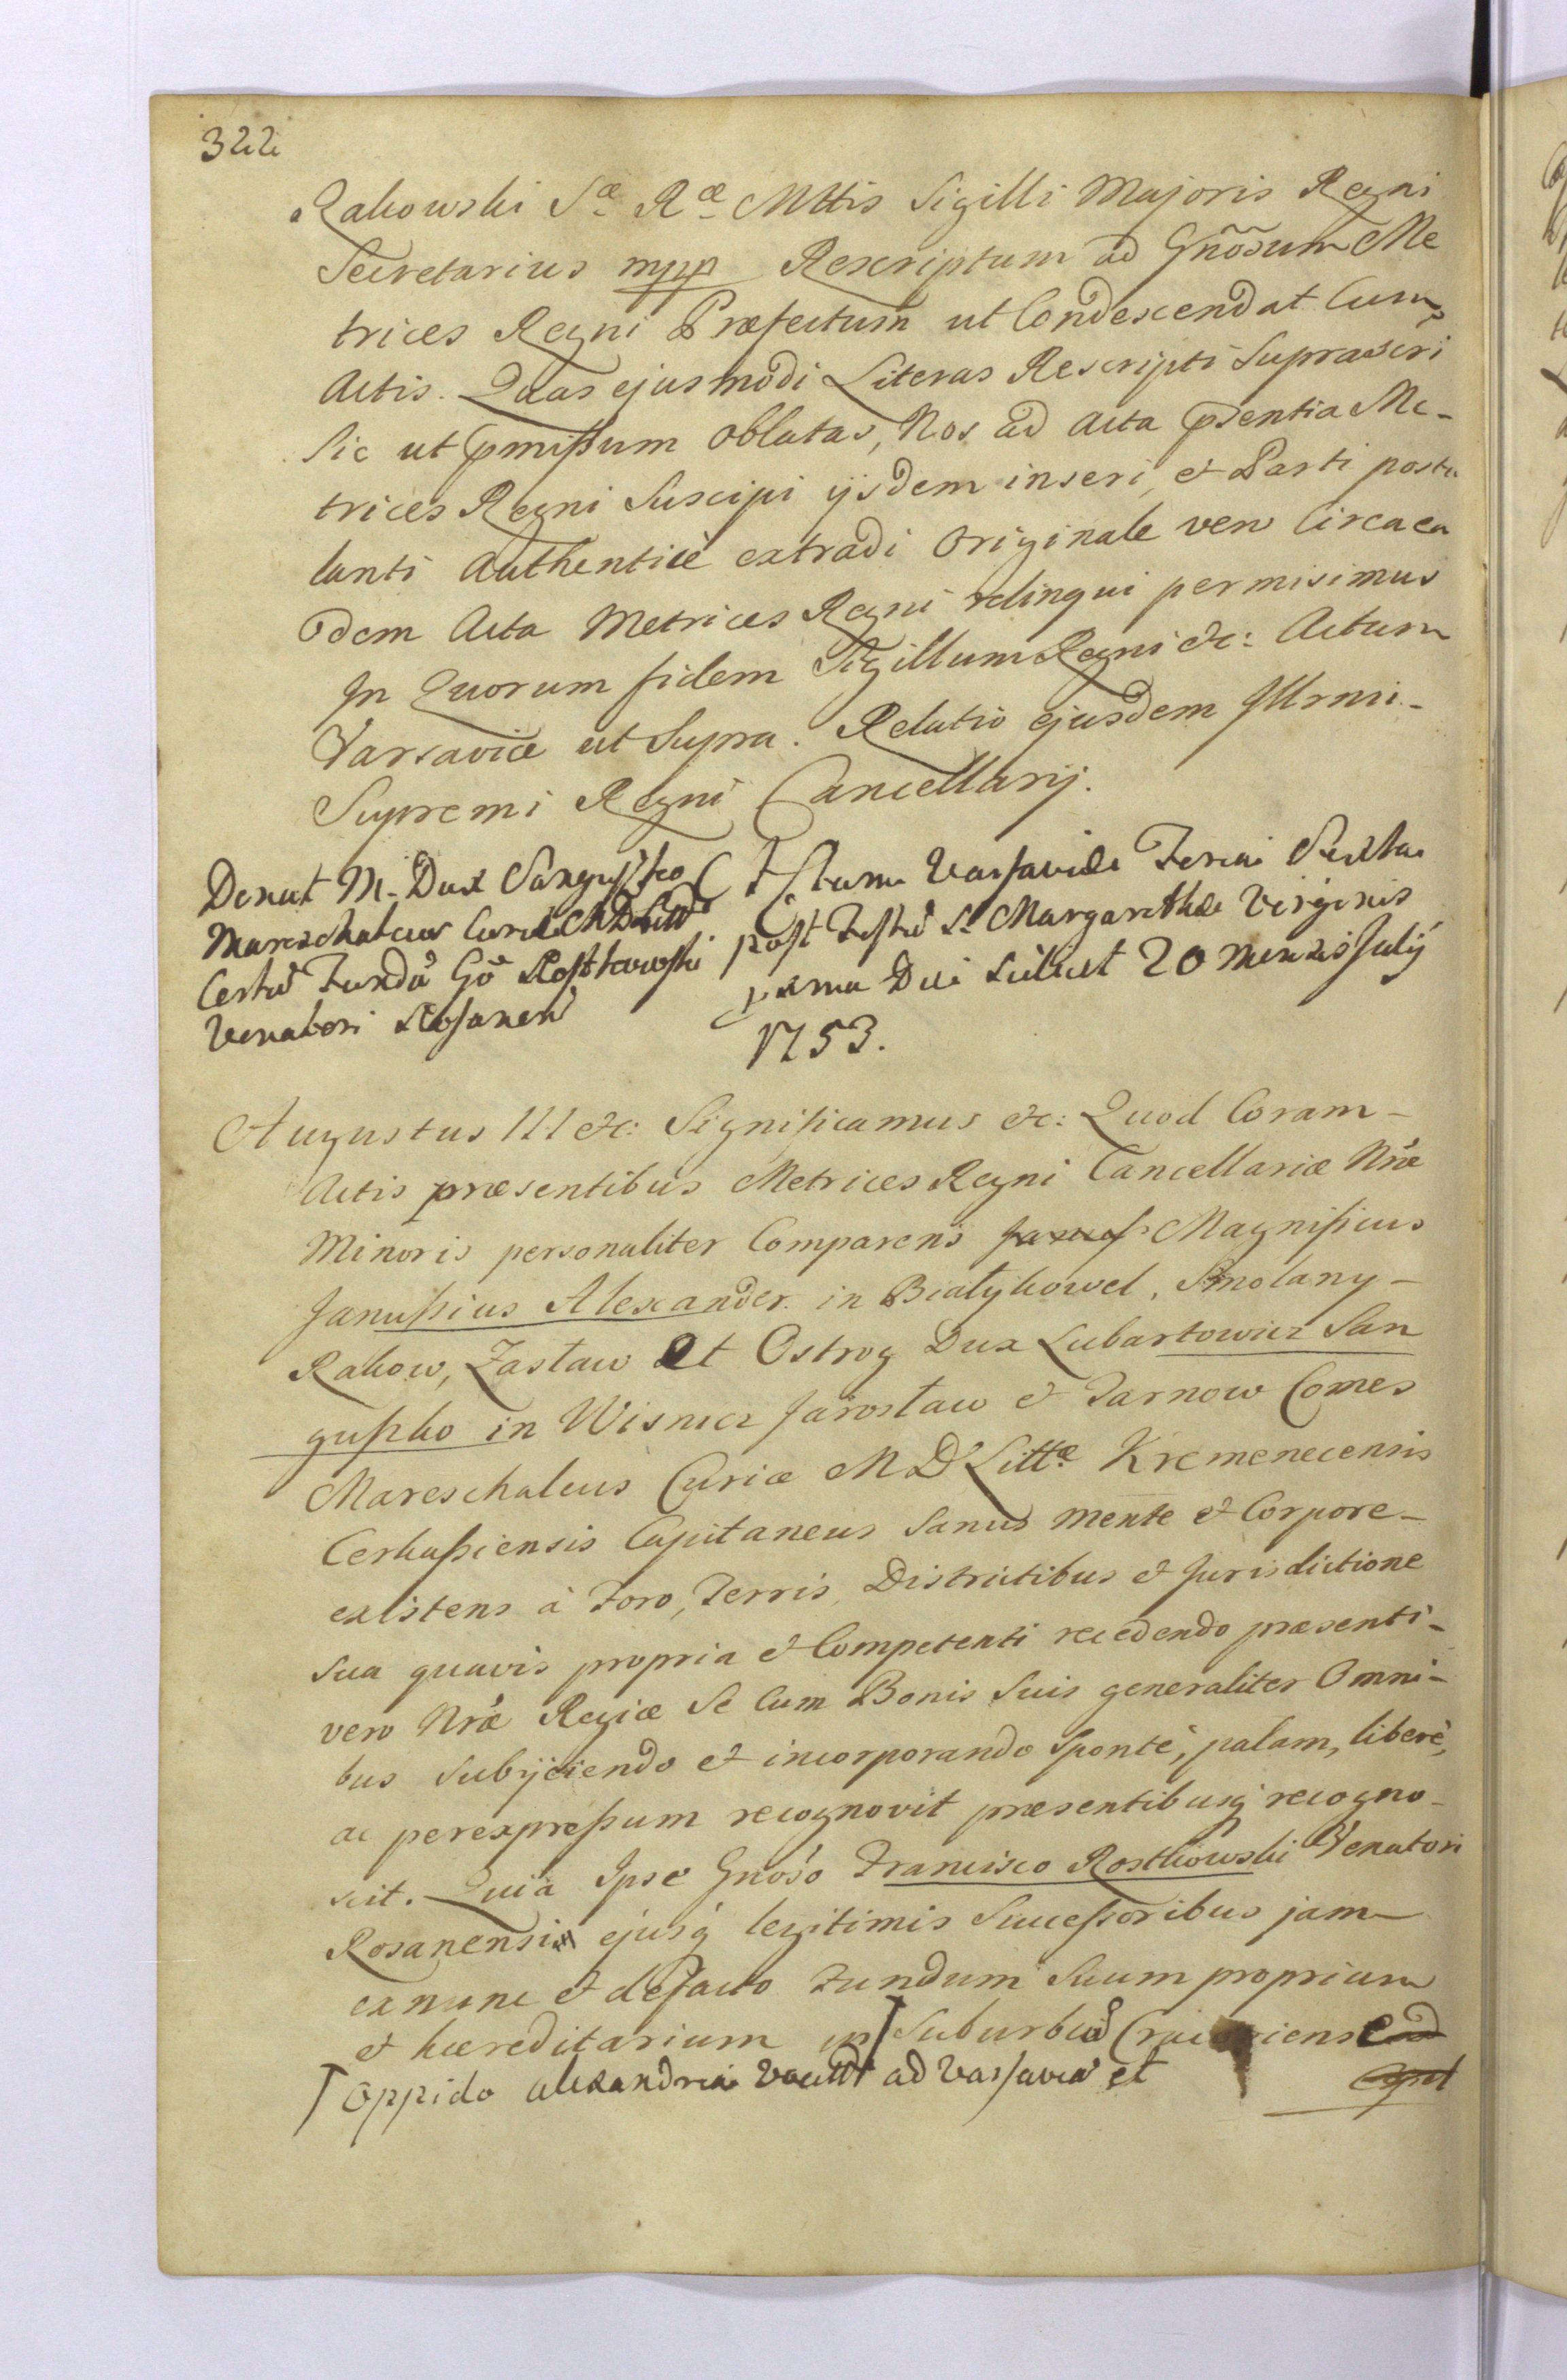 322
Rakowski Sæ Ræ Mttis Sigilli Majoris Regni
Secretarius mpp Rescriptum ad Gnõsum Me
trices Regni Præfectum ut Condescendat Cum
Actis. Quas ejusmodi Literas Rescripti Suprascri
Sic ut pmissum oblatas, Nos ad Acta psentia Me-
trices Regni Suscipi ijsdem inseri, et Parti postu
lanti Authenticè extradi Originale vero Circa ea
dem Acta Metrices Regni relinqui permisimus
In Quorum fidem Sigillum Regni &c: Actum
Varsaviæ ut Supra. Relatio ejusdem Illrmi-
Supremi Regni Cancellarij.
Donat M. Dux Sanguszko
Mareschalcus Curiæ M D Litt
Certu Fundu Gõ Rostkowski
Venatori Rosanen
Actum Varsaviæ Feria Sexta
post Festu S. Margarethæ Virginis
pxma Die Scilicet 20 Mensis July
1753.
Augustus III &c: Significamus &c: Quod Coram-
Actis præsentibus Metrices Regni Cancellariæ Nræ
Minoris personaliter Comparens Janus Magnificus
Janussius Alexander in Białykowel, Smolany-
Rakow, Zasław Et Ostrog Dux Lubartowicz San
guszko in Wisnicz Jarosław et Tarnow Comes
Mareschalcus Curiæ M D Littæ Kremenecensis
Cerkassiensis Capitaneus Sanus mente et Corpore-
existens à Foro, Terris, Districtibus et Jurisdictione
sua quavis propria et Competenti recedendo præsenti-
vero Nræ Regiæ Se Cum Bonis Suis generaliter Omni-
bus Subijciendo et incorporando Sponte, palam, liberè,
ac perexpressum recognovit præsentibusq recogno-
scit. Quia Ipse Gnoso Francisco Rostkowski Venatori
Rosanensi ejusq legitimis Successoribus jam
ex nunc et defacto Fundum Suum proprium
et hæreditarium in Suburbio
Oppido Alexandria ad Varsavia et